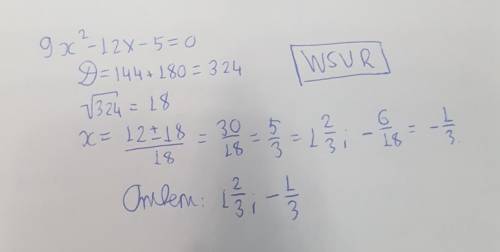 9x² - 12x - 5 = 0
D = 144 + 180 = 324
WSVR
√324 = 18
x = (12 ± 18)/18 = 30/18 = 5/3 = 1 2/3; - 6/18 = - 1/3
Ответ: 1 2/3; - 1/3